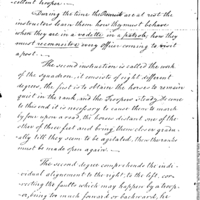 cation Troopers.
During the time the Recruits are at rest the
instructors learn them how they must behave
when they are in a vedette, in a patrole, how they
must reconnoiter every officer coming to visit
a post.
The second instruction is called the work
of the squadron, it consists of eight different
degrees, the first is to obtain the horses to remain
quiet in the rank, and the Troopers steady, to come
to this end it is necessary to cause them to march
by four upon a road, the horses distant one of the
other of three feet and bring them closer gradu-
ally till they seem to be agitated, then the ranks
must be made open again.
The second degree comprehends the indi-
vidual alignment to the right, to the left, cor-
recting the faults which may happen by a troop-
er, being too much forward or backward, he